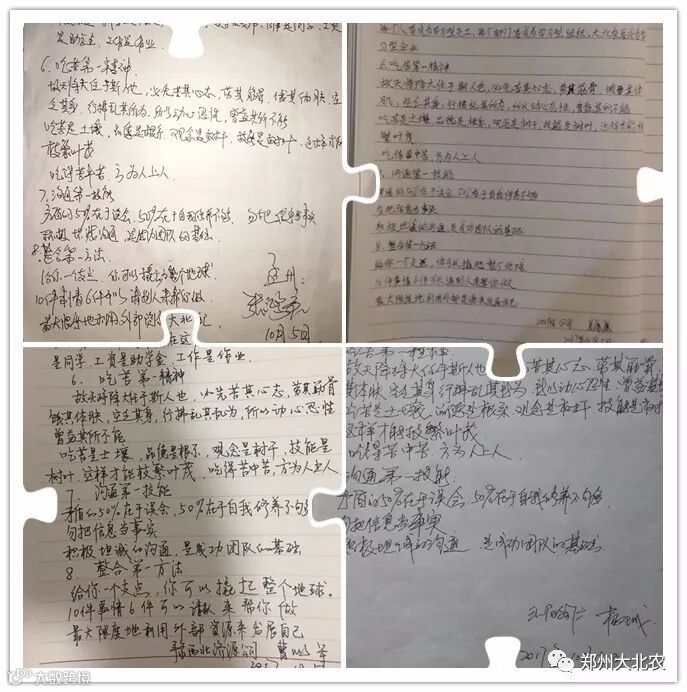 是助学金、工作是作业
6、吃苦第一精神
故天将降大任于斯人也,必先苦其心态,劳其筋骨,饿其体肤,空
乏其身,行拂乱其所为,所以动心忍性,曾益其所不能
吃苦是土壤,品德是根系,观念是树干,技能是树叶,这样才能
枝繁叶茂
吃得苦中苦,方为人上人
7、沟通第一技能
矛盾的50%在于误会,50%在于自我修养不够 勿把信息当事实
积极坦诚沟通,是成功团队的基础
8、整合第一方法
给你一个支点,你可以撬起整个地球
10件事情6件可以请别人来帮你做
最大限度地利用外部资源
10月5日
每个人要成为学习型员工,每个部门要成为学习型组织,大北农
习型企业
6、吃苦第一精神
故天将降大任于斯人也,必先苦其心志,劳其筋骨,饿其体
肤,空乏其身,行拂乱其所为,所以动心忍性,曾益其所不能
吃苦是土壤,品德是根系,观念是树干,技能是树叶,这样才能枝
繁叶茂
吃得苦中苦,方为人上人
7、沟通第一技能
矛盾的50%在于误会,50%在于自我修养不够
勿把信息当事实
积极坦诚的沟通,是成功团队的基础
8、整合第一方法
给你一个支点,你可以撬起整个地球
10件事情6件可以请别人来帮你做
最大限度地利用外部资源来发展自己
是同学,工资是助学金,工作是作业。
6、吃苦第一精神
故天将降大任于斯人也,必先苦其心志,劳其筋骨
饿其体肤,空乏其身,行拂乱其所为,所以动心忍性
曾益其所不能
吃苦是土壤,品德是根系,观念是树干,技能是
树叶,这样才能枝繁叶茂,吃得苦中苦,方为人上人
7、沟通第一技能
矛盾的50%在于误会,50%在于自我修养不够
勿把信息当事实
积极坦诚的沟通,是成功团队的基础
8、整合第一方法
给你一个支点,你可以撬起整个地球。
10件事情6件可以请人来帮你做
最大限度地利用外部资源来发展自己
豫西北济源公司
吃苦第一精神
故天将降大任于斯人也 苦其心态,劳其筋骨
其体肤,空乏其身,行拂乱其所为,所以动心忍性,曾益其
吃苦是土壤,品德是根系,观念是树干,技能是树
这样才能枝繁叶茂
吃得苦中苦,方为人上人
沟通第一技能
矛盾的50%在于误会,50%在于自我修养不够
勿把信息当事实
积极坦诚的沟通 是成功团队的基础
2017
大数跨境
郑州大北农